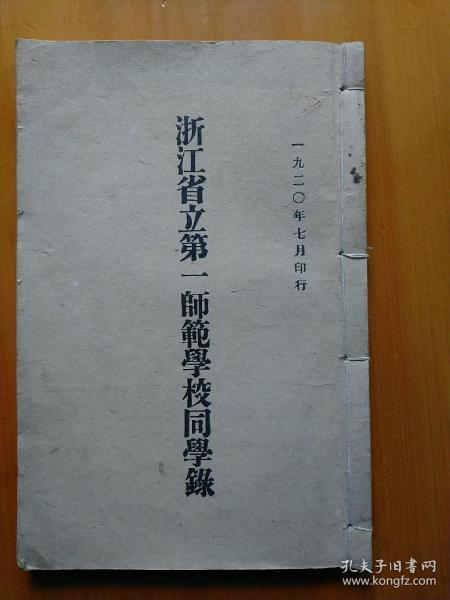 一九二〇年七月印行
浙江省立第一師範學校同學錄
孔夫子旧书网
www.kongfz.com